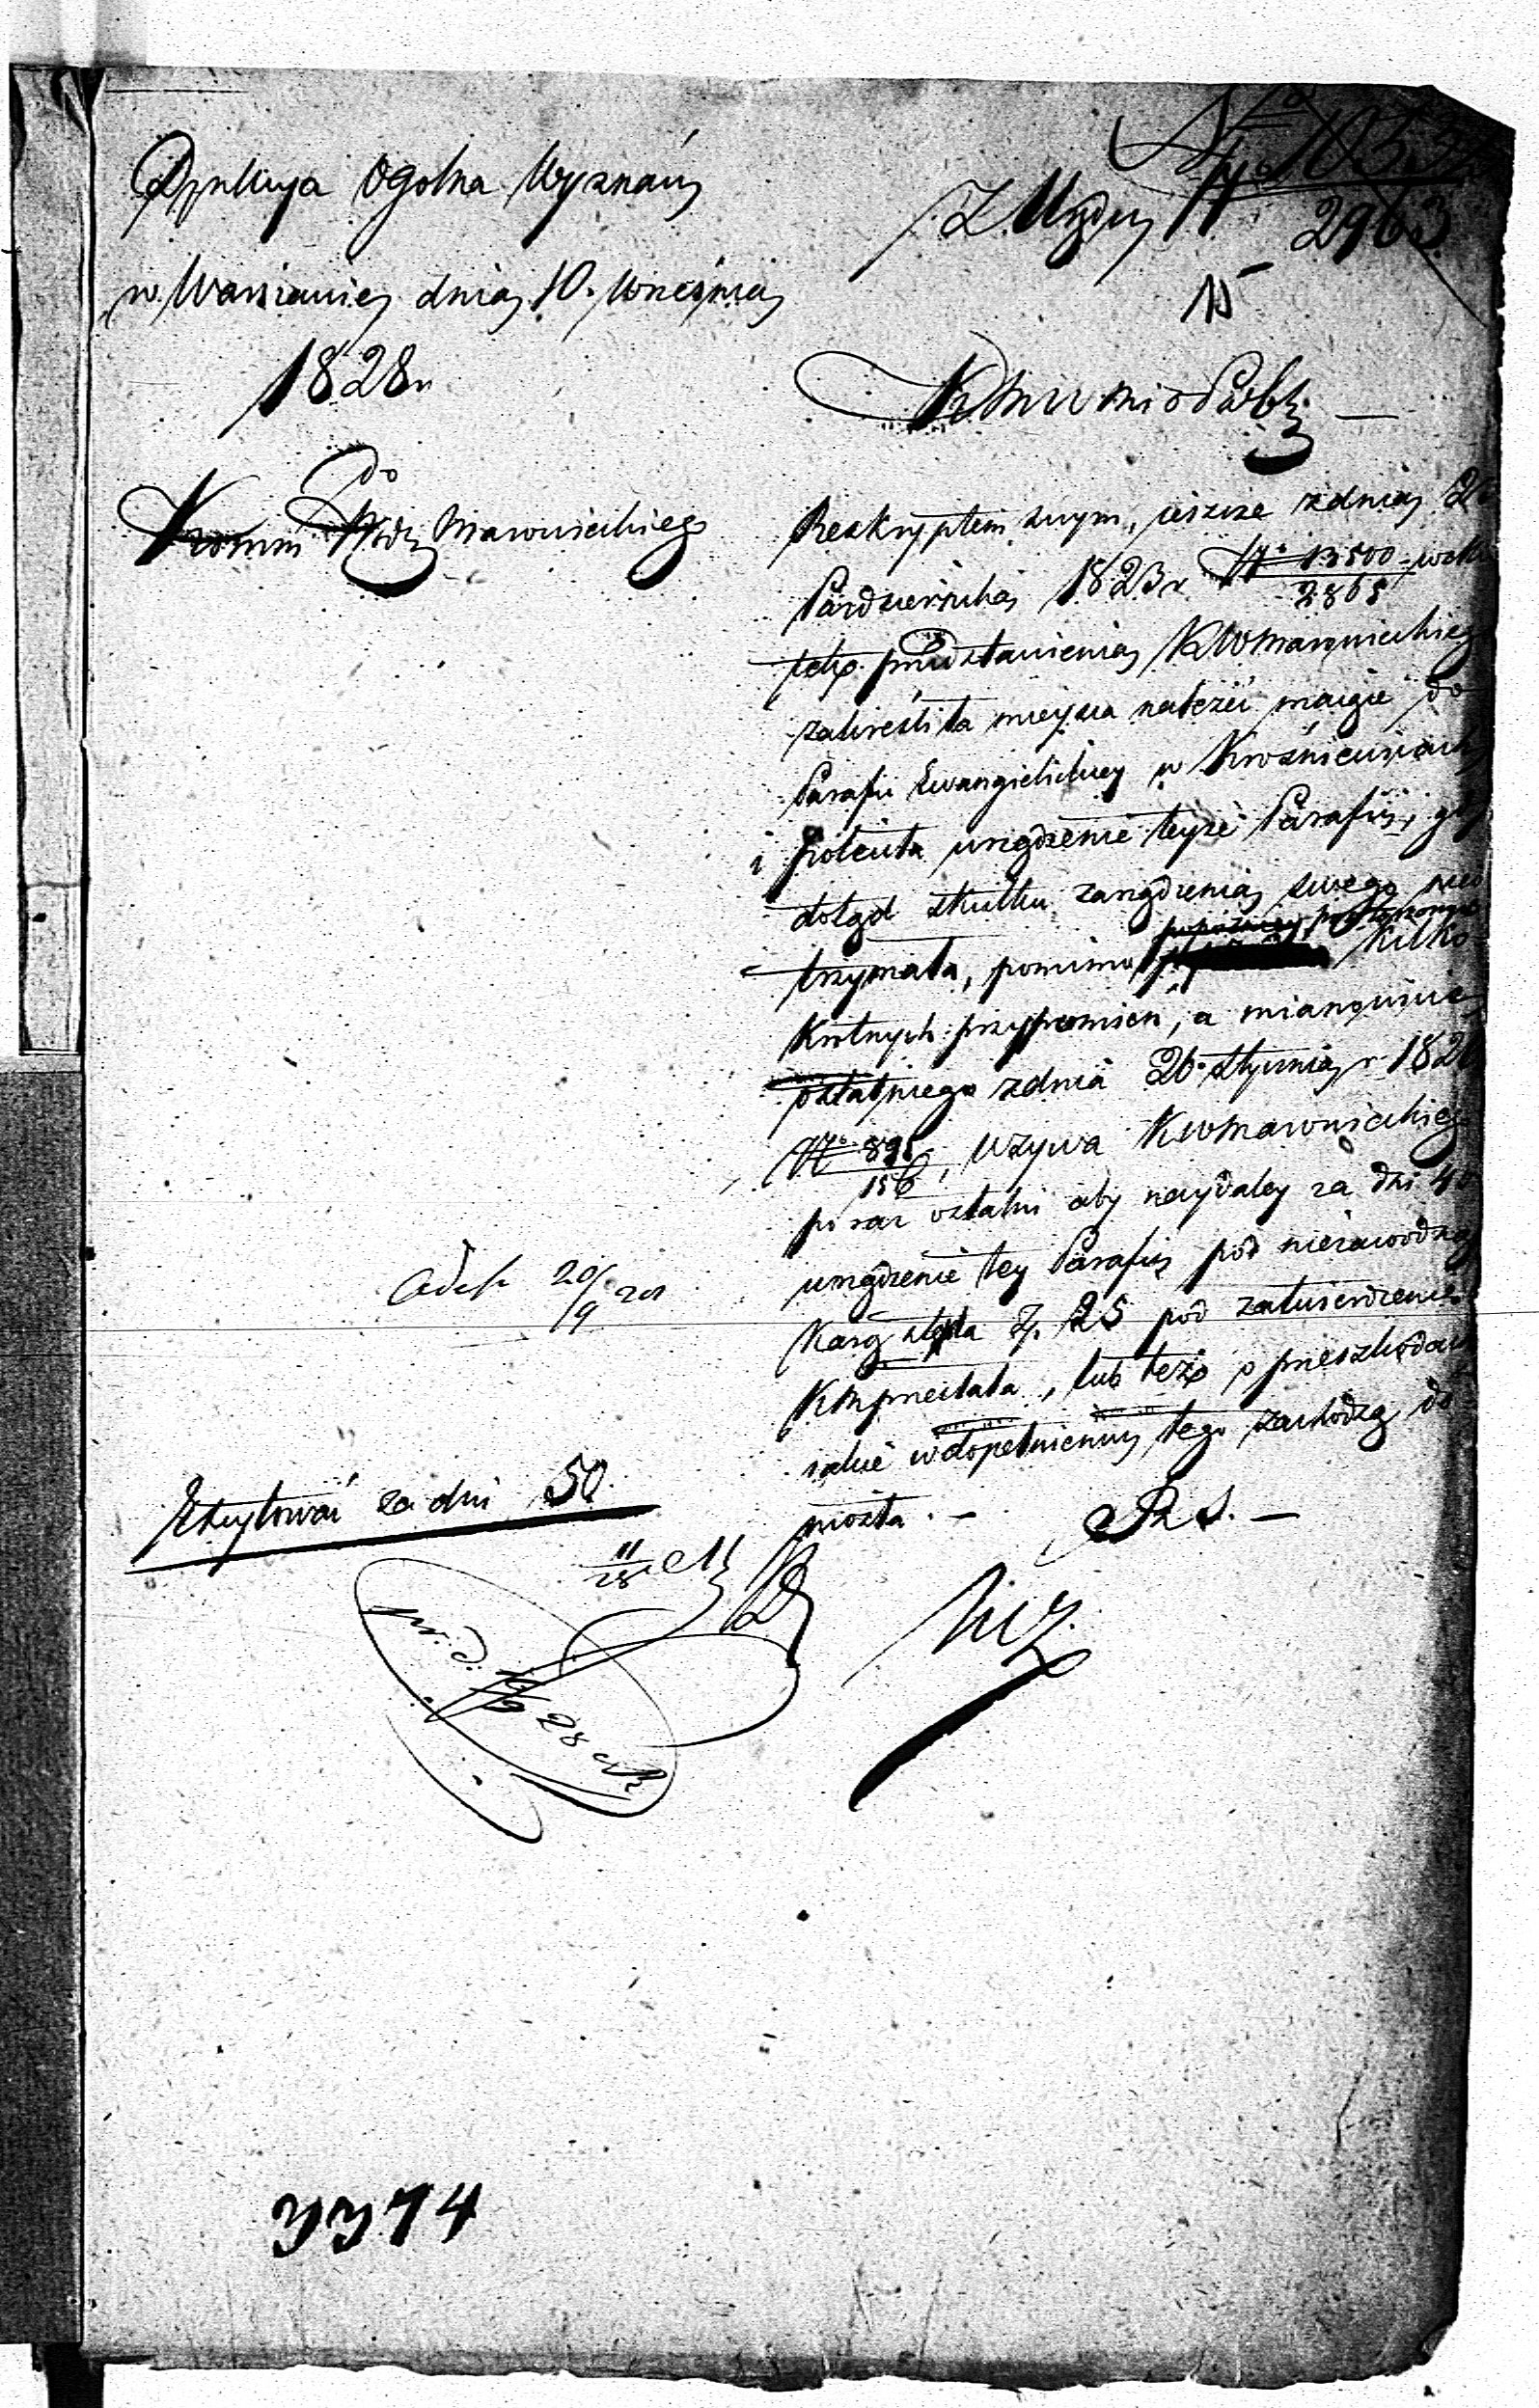 Dyrekcya Ogolna Wyznań
w Warszawie dnia 10. Września
1828 r.
Do
Kommissyi Wdz. Mazowieckiego
Z Urzędu N 2963
15
K
Reskryptem swym, ieszcze z dnia 2
Pazdziernika 1823 r. N° 13500 / 2865
przedstawienia KWMazowieckiego
zakreśliła mieysca należeć maiące do
Parafii Ewangielickiey w Krośniewicach
i poleciła urządzenie teyże Parafii, gdy
dotąd skutku zarządzenia swego nieo
trzymała, pomimo kilko
krotnych przypomień, a mianowicie
ostatniego z dnia 26. Stycznia r. 182
N° 895 / 156, Wzywa KWMazowieckiego
po raz ostatni aby naydaley za dni 40
urządzenie tey Parafii pod niezawodną
karą Zp. 25 pod zatwierdzenie
KRz przesłała, lub też o przeszkodach
iakie w dopełnieniu tego zachodzą do
niosła. —
Exytować za dni 50
11/28
pr. d. 28
3374